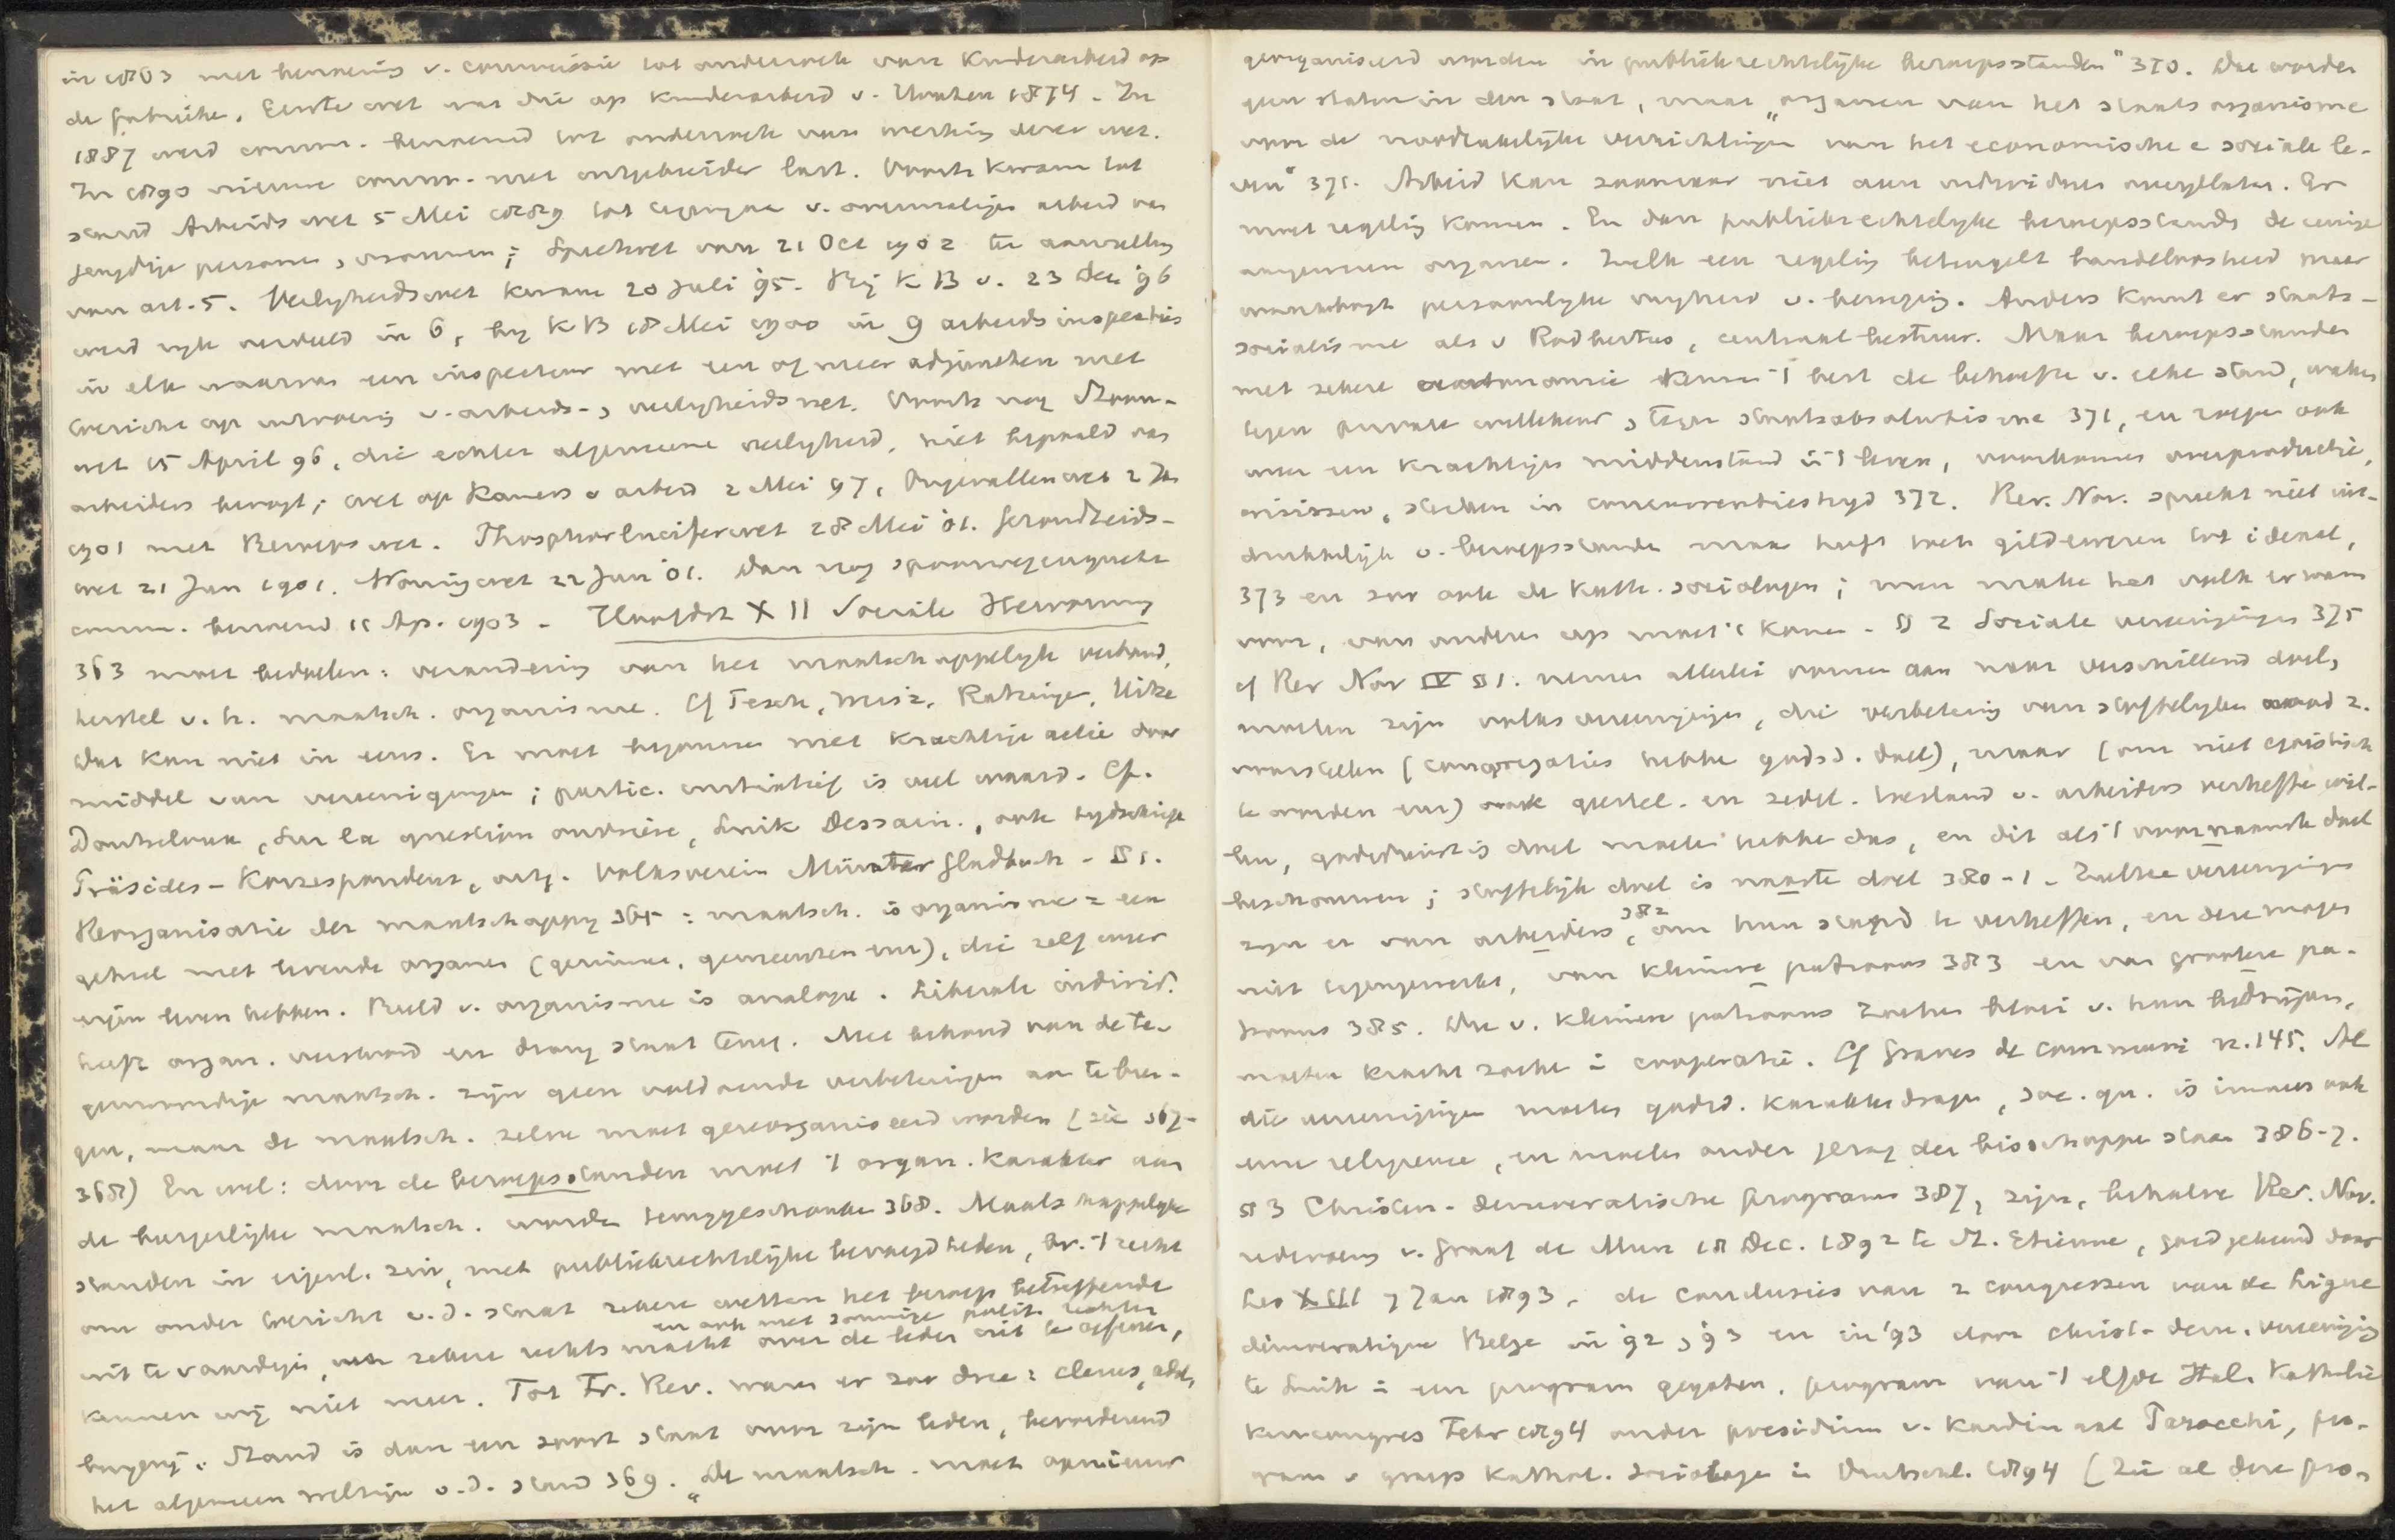 in 1863 met benoeming v. commissie tot onderzoek van kinderarbeid op
de fabrieke. Eerste wet was die op kinderarbeid v. Houten 1874. In
1887 werd comm. benoemd tot onderzoek van werking dezer wet.
In 1890 nieuwe comm. met uitgebreider last. Voorts kwam tot
stand Arbeidswet 5 Mei 1889 tot tegengaan v. overmatigen arbeid van
jeugdige personen, vrouwen;
van art. 5. Veiligheidswet kwam 20 Juli '95. Bij K B v. 23 Dec '96
werd rijk verdeeld in 6, bij K B 18 Mei 1900 in 9 arbeidsinspecties
in elk waarvan een inspecteur met een of meer adjuncten met
toezicht op uitvoering v. arbeids- veiligheidswet. Voorts nog Stoom-
wet 15 April 96, die echter algemeene veiligheid, niet bepaald van
arbeiders beoogt; wet op Kamers v arbeid 2 Mei 97, Ongevallenwet 2 Jan
1901 met Beroepswet. Phosphorluciferwet 28 Mei '01. Gezondheids-
wet 21 Jun 1901. Woningwet 22 Jun '01. Dan nog spoorwegenquete
comm. benoemd 11 Ap. 1903 - Hoofdst XII Sociale Hervorming
363 moet bedoelen: verandering van het maatschappelijk verband,
herstel v. h. maatsch. organisme. Cf Pesch, Weisz, Ratzinger, Hitze
Dat kan niet in eens. Er moet begonnen met krachtige actie door
middel van vereenigingen; partic. initiatief is veel waard. Cf.
Douterloux, Sur la question ouvrière, Luik Dessain., ook tydschrift
Präsides-Korrespondenz, uitg. Volksverein München Gladbach - § 1.
Reorganisatie der maatschappy 365: maatsch. is organisme = een
geheel met levende organen (gezinnen, gemeenten enz), die zelf weer
eigen leven hebben. Beeld v. organisme is analoge. Liberale individ.
heeft organ. verband en drong staat terug. Met behoud van de te-
genwoordige maatsch. zijn geen voldoende verbeteringen aan te bren-
gen, maar de maatsch. zelve moet gereorganiseerd worden (zie 367-
368) En wel: door de beroepsstanden moet 't organ. karakter aan
de burgerlijke maatsch. worden teruggeschonken 368. Maatschappelyke
standen in eigenl. zin, met publiekrechtelijke bevoegdheden, bv. 't recht
om onder toezicht v.d. staat zekere wetten het beroep betreffende
en ook met sommige polit. rechten
uit te vaardigen, zekere rechtsmacht over de leden uit te oefenen,
kennen wij niet meer. Tot Fr. Rev. waren er zoo drie: clerus, adel,
burgerij. Stand is dan een soort staat voor zijn leden, bevorderend
het algemeen welzijn v.d. stand 369. "De maatsch. moet opnieuw
georganiseerd worden in publiekrechtelijke beroepsstanden" 370. Die worden
geen staten in den staat, maar "organen van het staatsorganisme
voor de noodzakelijke verrichtingen van het economische e sociale le-
ven" 371. Arbeid kan zoomaar niet aan individuen overgelaten. Er
moet regeling komen. En dan publiekrechtelyke beroepsstande de eenige
aangewezen organen. Zulk een regeling beteugelt bandeloosheid maar
waarborgt persoonlyke vryheid v. beweging. Anders komt er staats-
socialisme als v Rodbertus, centraal bestuur. Maar beroepsstanden
met zekere autonomie kennen 't best de behoefte v. elke stand, waken
tegen private willekeur, tegen staatsabsolutisme 371, en roepen ook
weer een krachtigen middenstand in 't leven, voorkomen overproductie,
crisissen, in concurrentiestryd 372. Rer. Nov. spreekt niet uit-
drukkelijk v. beroepsstanden maar heeft toch gildewezen tot ideaal,
373 en zoo ook de kath. sociologen; men make het volk er warm
voor, van onderen op moet 't komen. § 2 Sociale vereenigingen 375
cf Rer Nov IV § 1. nemen allerlei vormen aan naar verschillend doel,
moeten zijn volksvereenigingen, die verbetering van stoffelyken nood z.
voorstellen (congregaties hebben godsd. doel), maar (om niet egoistisch
te worden enz) ook geestel. en zedel. toestand v. arbeiders verheffen wil-
len, godsdienstig doel moeten hebben dus, en dit als 't voornaamste doel
beschouwen; stoffelijk doel is naaste doel 380-1. Zulke vereenigingen
382
zijn er van arbeiders, om hun stand te verheffen, en deze mogen
niet tegengewerkt, van kleinere patroons 383 en van grootere pa-
troons 385. Die v. kleinere patroons zoeken bloei v. hun bedrijven,
moeten kracht zoeken in cooperatie. Cf Graves de communi n. 145. Al
die vereenigingen moeten godsd. karakter dragen, soc. qu. is immers ook
eene religieuse, en moeten onder gezag der bisschoppen staan 386-7.
§ 3 Christen-democratische programs 387, zijn, behalve Rer. Nov.
redevoering v. graaf de Mun 18 Dec. 1892 te St. Etienne, goedgekeurd door
Leo XIII 7 Jan 1893, de conclusies van 2 congressen van de Ligue
démocratique Belge in '92, '93 en in '93 door christ-dem. vereeniging
te Luik in een program gegoten, program van 't elfde Ital. Katholie
kencongres Febr 1894 onder presidium v. kardinaal Parocchi, pro-
gram v groep kathol. sociologen in Duitschl. 1894 (Zie al deze pro-